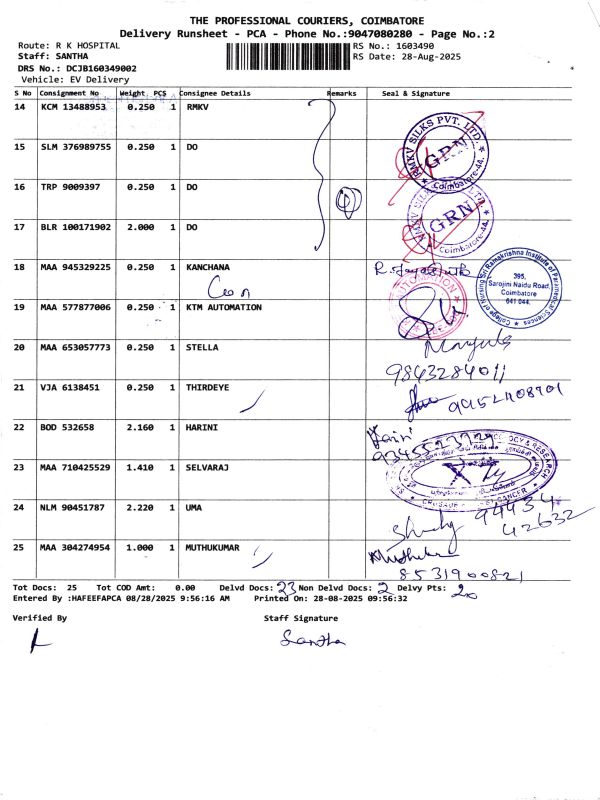 THE PROFESSIONAL COURIERS, COIMBATORE
Delivery Runsheet - PCA - Phone No.:9047080280 - Page No.:2
Route: R K HOSPITAL
RS No.: 1603490
Staff: SANTHA
RS Date: 28-Aug-2025
DRS No.: DCJB160349002
Vehicle: EV Delivery
S No Consignment No Weight PCS Consignee Details Remarks Seal & Signature
14 KCM 13488953 0.250 1 RMKV
RMKV SILKS PVT. LTD.
GRN
Coimbatore-44.
15 SLM 376989755 0.250 1 DO
16 TRP 9009397 0.250 1 DO
RMKV SILKS PVT. LTD.
GRN
Coimbatore-44.
17 BLR 100171902 2.000 1 DO
18 MAA 945329225 0.250 1 KANCHANA
College of Nursing Sri Ramakrishna Institute of Paramedical Sciences
395,
Sarojini Naidu Road,
Coimbatore
641 044.
19 MAA 577877006 0.250 1 KTM AUTOMATION
AUTOMATION
20 MAA 653057773 0.250 1 STELLA
9843284011
21 VJA 6138451 0.250 1 THIRDEYE
22 BOD 532658 2.160 1 HARINI
23 MAA 710425529 1.410 1 SELVARAJ
& RESEARCH
CANCER
24 NLM 90451787 2.220 1 UMA
94434
42632
25 MAA 304274954 1.000 1 MUTHUKUMAR
Muthukumar
8531900821
Tot Docs: 25 Tot COD Amt: 0.00 Delvd Docs: 23 Non Delvd Docs: 2 Delvy Pts: 20
Entered By :HAFEEFAPCA 08/28/2025 9:56:16 AM Printed On: 28-08-2025 09:56:32
Verified By Staff Signature
Santha